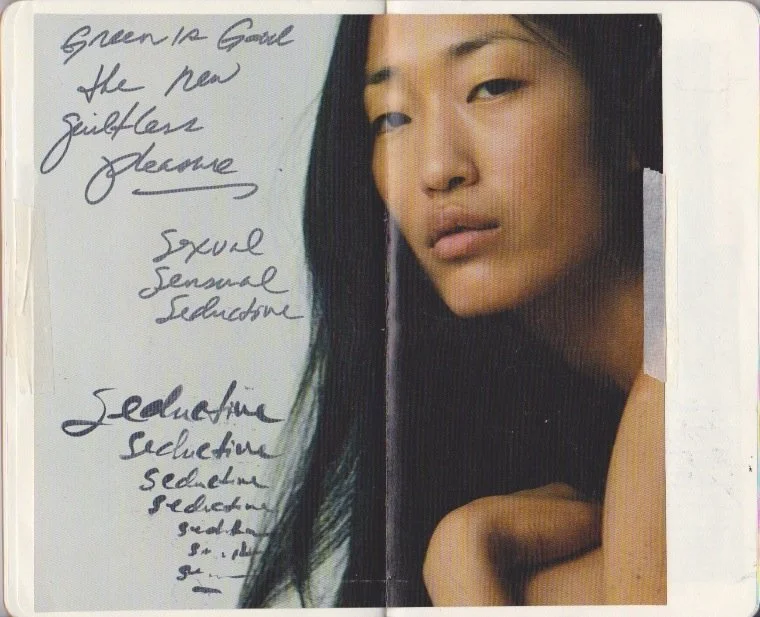 Green is Good
the new
guiltless
pleasure
Sexual
Sensual
Seductive
Seductive
Seductive
Seductive
Seductive